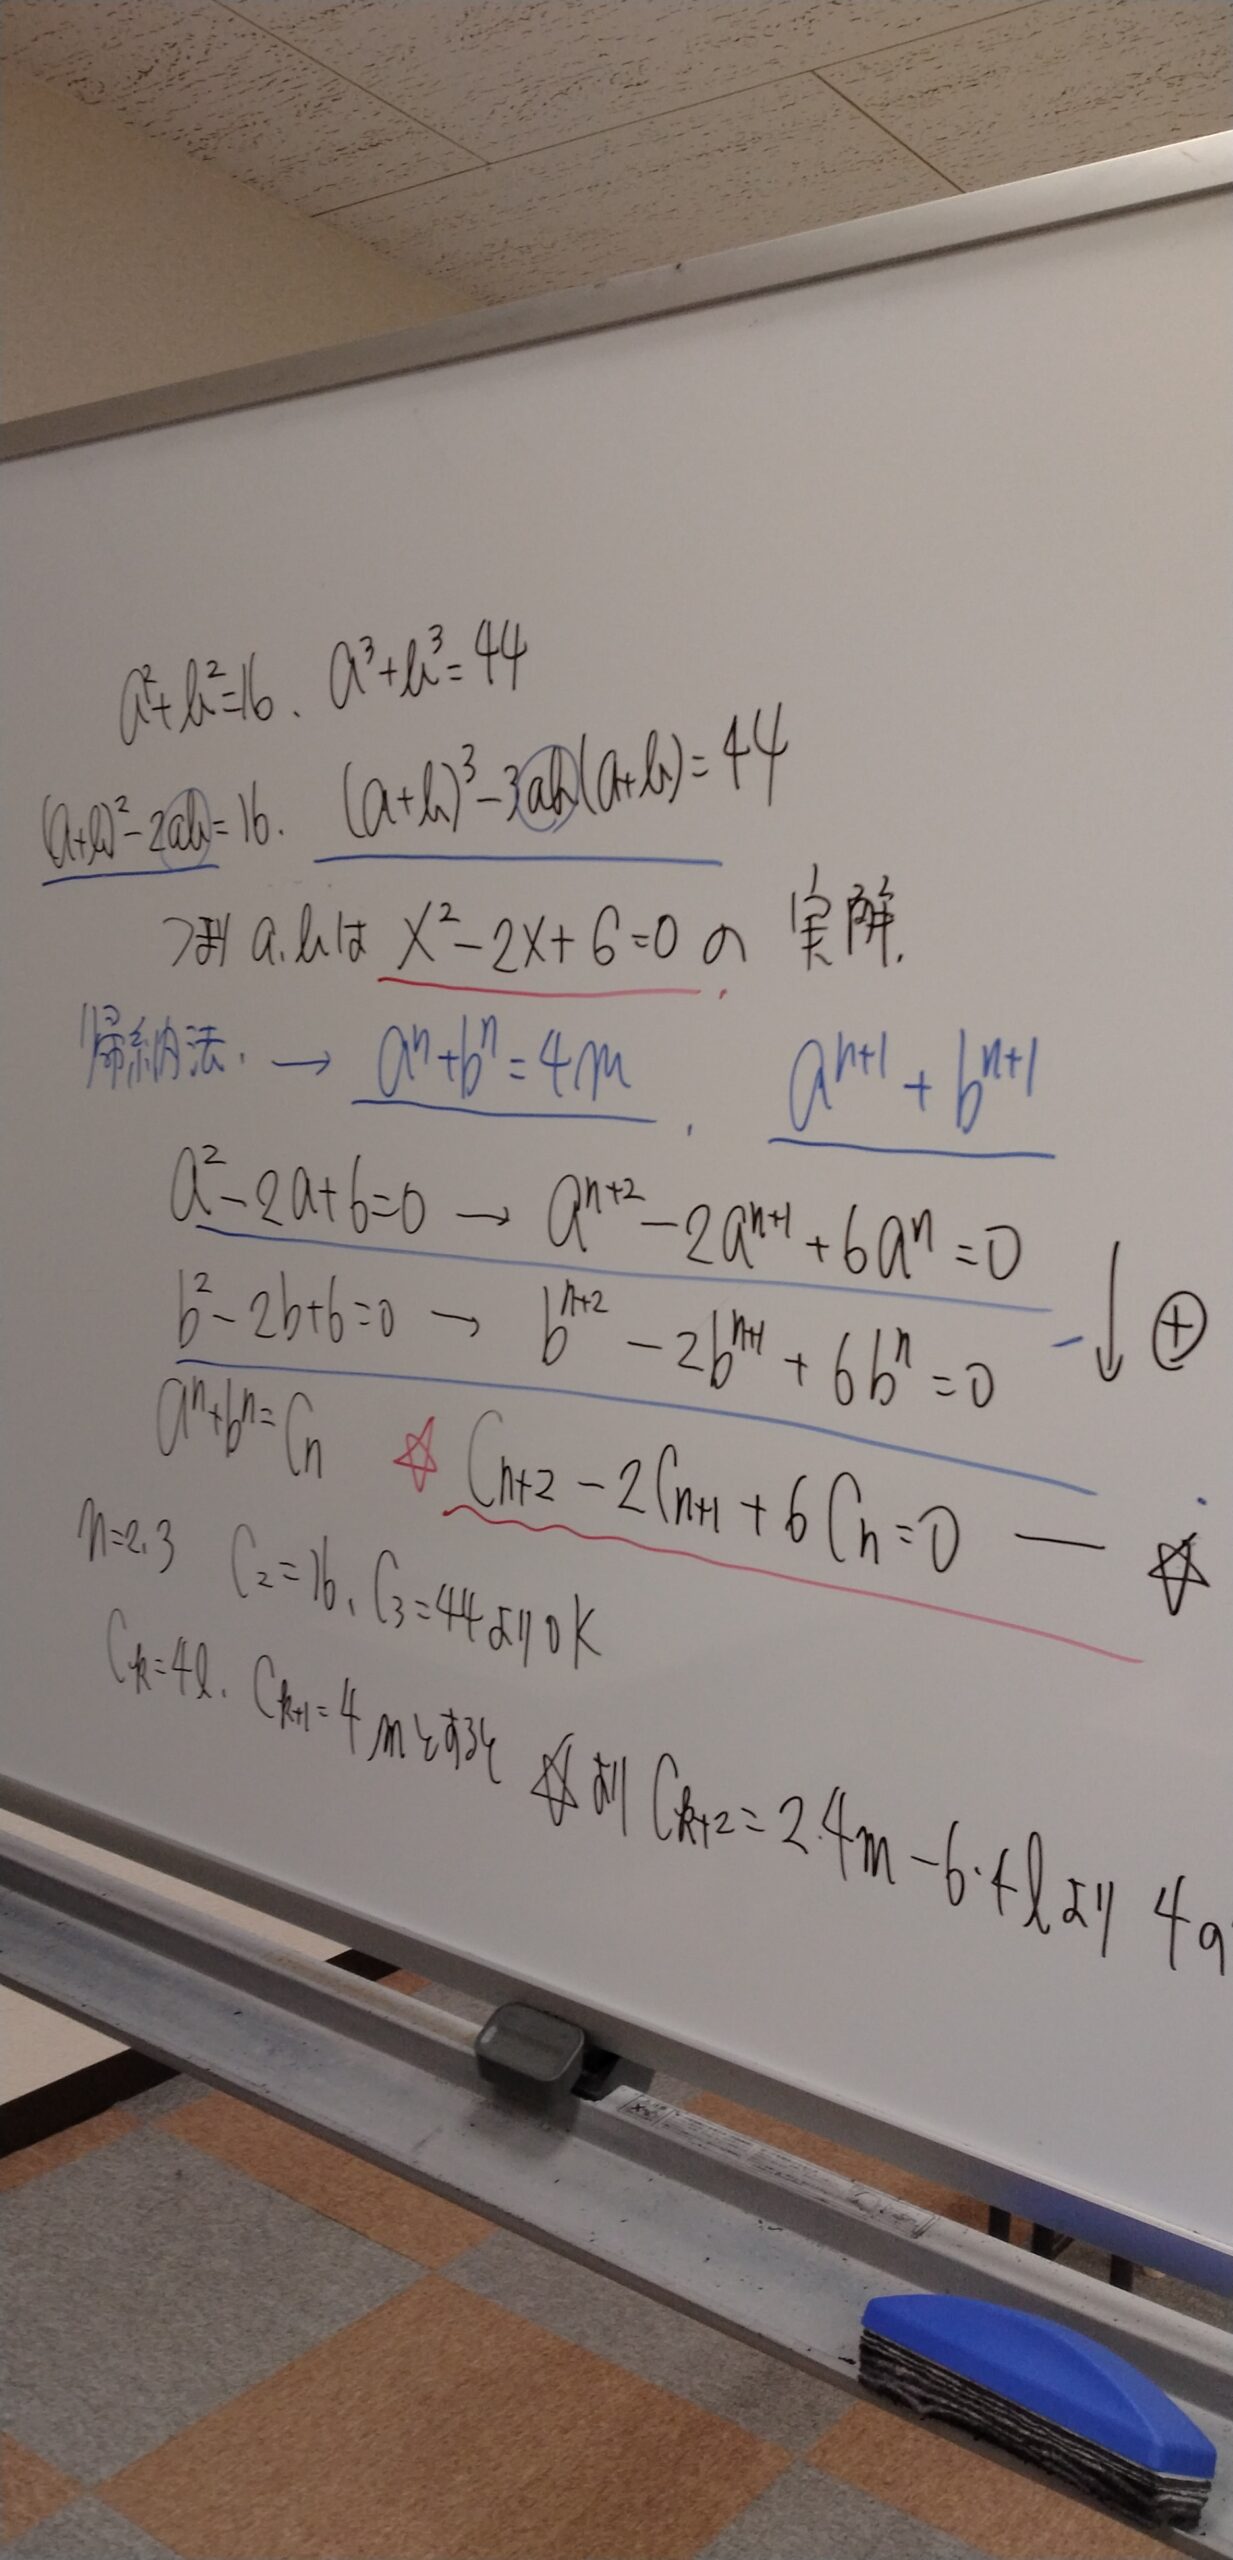 a²+b²=16、a³+b³=44
(a+b)²-2ab=16. (a+b)³-3ab(a+b)=44
つまり a,bは x²-2x+6=0の 実解.
帰納法. → aⁿ+bⁿ=4m, aⁿ⁺¹+bⁿ⁺¹
a²-2a+6=0 → aⁿ⁺²-2aⁿ⁺¹+6aⁿ=0
b²-2b+6=0 → bⁿ⁺²-2bⁿ⁺¹+6bⁿ=0 ↓⊕
aⁿ+bⁿ=Cn ☆ Cn+2-2Cn+1+6Cn=0 — ☆
n=2,3 C₂=16、C₃=44よりOK
Ck=4l、Ck+1=4mとすると ☆より Ck+2=2・4m-6・4lより 4の